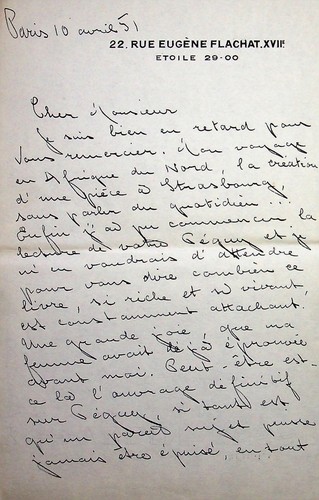 Paris 10 avril 51
22. RUE EUGÈNE FLACHAT. XVIIE
ETOILE 29-00
Cher Monsieur
Je suis bien en retard pour
vous remercier. Mon voyage
en Afrique du Nord, la création
d'une pièce à Strasbourg,
sans parler du quotidien...
Enfin j'ai pu commencer la
lecture de votre Péguy et je
m'en voudrais d'attendre
pour vous dire combien ce
livre, si riche et si vivant,
est constamment attachant.
Une grande joie, que ma
femme avait déjà éprouvée
avant moi. Peut-être est-
ce là l'ouvrage définitif
sur Péguy, si tant est
qu'un pareil sujet puisse
jamais être épuisé, en tout